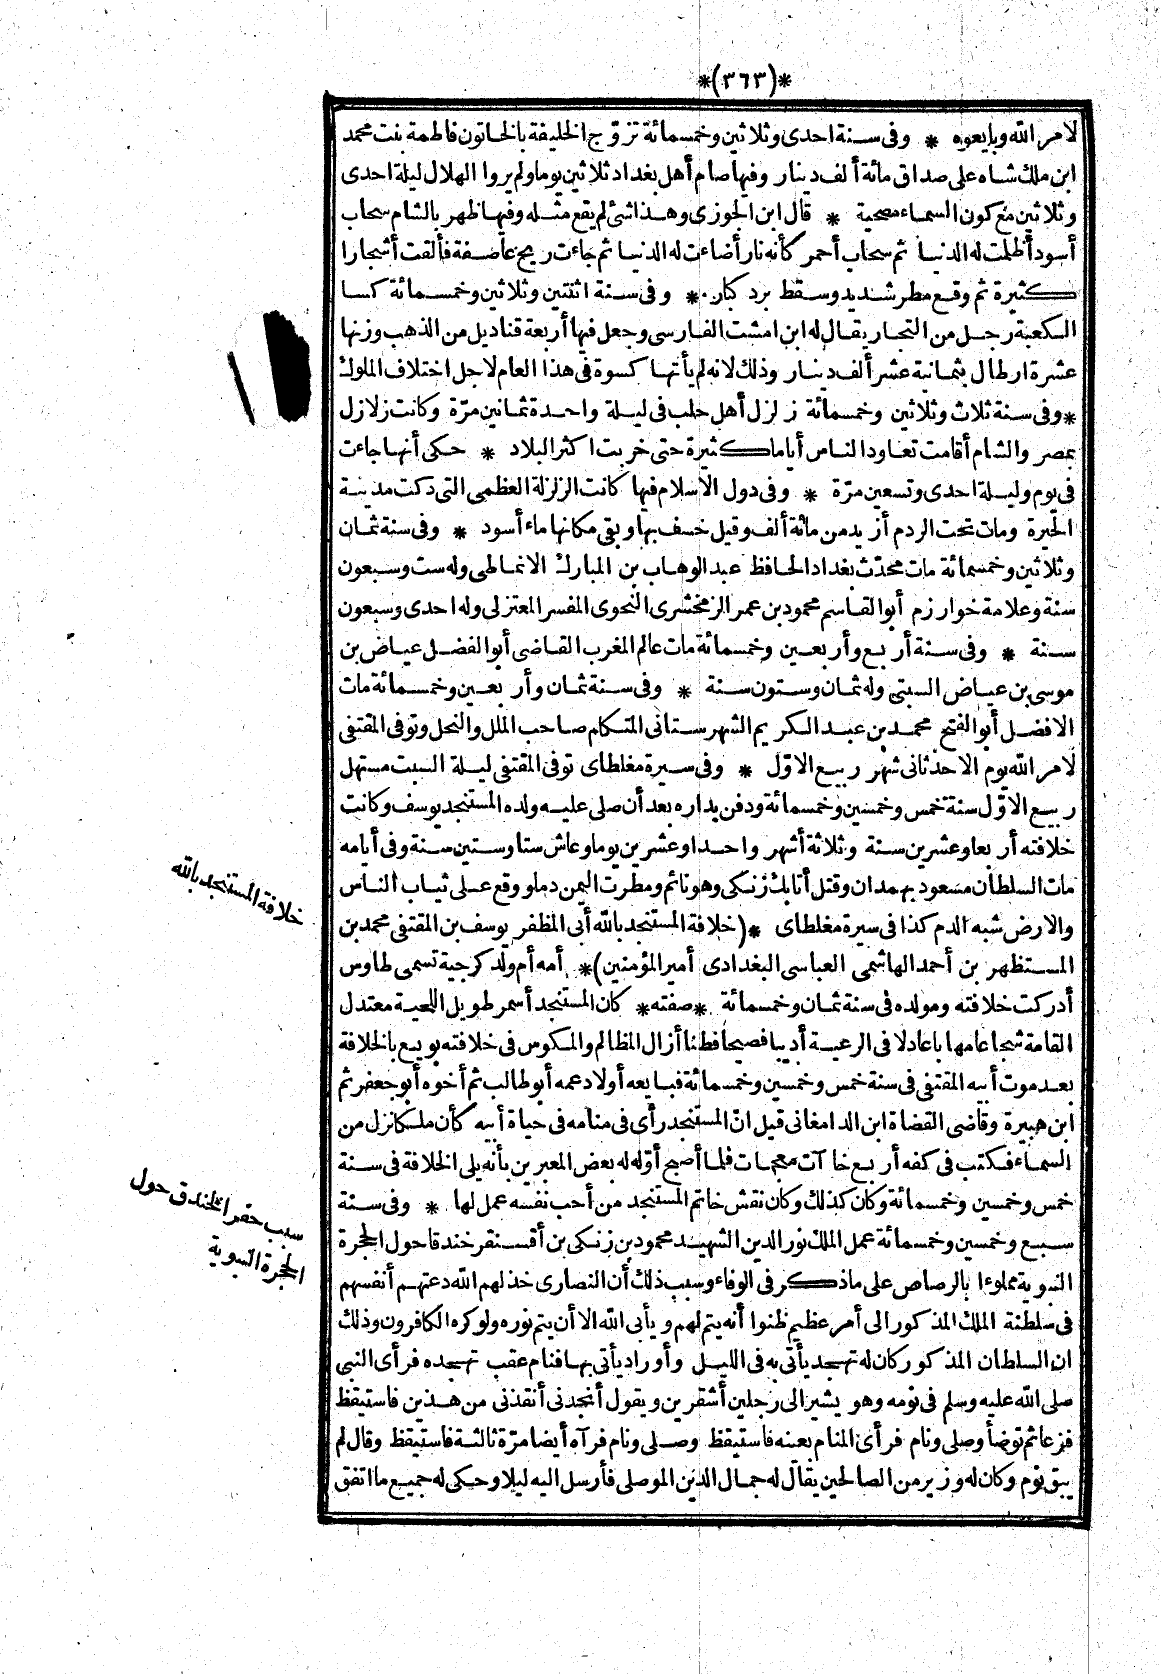 *(٣٦٣)*
لامر الله وبايعوه * وفى سنة احدى وثلاثين وخمسمائة تزوّج الخليفة بالخاتون فاطمة بنت محمد
ابن ملك شاه على صداق مائة ألف دينار وفيها صام أهل بغداد ثلاثين يوما ولم يروا الهلال ليلة احدى
وثلاثين مع كون السماء مصحية * قال ابن الجوزى وهذا شئ لم يقع مثله وفيها ظهر بالشام سحاب
أسود أظلمت له الدنيا ثم سحاب أحمر كأنه نار أضاءت له الدنيا ثم جاءت ريح عاصفة فألقت أشجارا
كثيرة ثم وقع مطر شديد وسقط برد كبار * وفى سنة اثنتين وثلاثين وخمسمائة كسا
الكعبة رجل من التجار يقال له ابن امشت الفارسى وجعل فيها أربعة قناديل من الذهب وزنها
عشرة ارطال بثمانية عشر ألف دينار وذلك لانه لم يأتها كسوة فى هذا العام لاجل اختلاف الملوك
* وفى سنة ثلاث وثلاثين وخمسمائة زلزل أهل حلب فى ليلة واحدة ثمانين مرّة وكانت زلازل
بمصر والشام أقامت تعاود الناس أياما كثيرة حتى خربت اكثر البلاد * حكى أنها جاءت
فى يوم وليلة احدى وتسعين مرّة * وفى دول الاسلام فيها كانت الزلزلة العظمى التى دكت مدينة
الحيرة ومات تحت الردم أزيد من مائة ألف وقيل خسف بها وبقى مكانها ماء أسود * وفى سنة ثمان
وثلاثين وخمسمائة مات محدّث بغداد الحافظ عبد الوهاب بن المبارك الانماطى وله ست وسبعون
سنة وعلامة خوارزم أبو القاسم محمود بن عمر الزمخشرى النحوى المفسر المعتزلى وله احدى وسبعون
سنة * وفى سنة أربع وأربعين وخمسمائة مات عالم المغرب القاضى أبو الفضل عياض بن
موسى بن عياض السبتى وله ثمان وستون سنة * وفى سنة ثمان وأربعين وخمسمائة مات
الافضل أبو الفتح محمد بن عبد الكريم الشهرستانى المتكلم صاحب الملل والنحل وتوفى المقتفى
لامر الله يوم الاحد ثانى شهر ربيع الاوّل * وفى سيرة مغلطاى توفى المقتفى ليلة السبت مستهل
ربيع الاوّل سنة خمس وخمسين وخمسمائة ودفن بداره بعد أن صلى عليه ولده المستنجد يوسف وكانت
خلافته أربعا وعشرين سنة وثلاثة أشهر واحدا وعشرين يوما وعاش ستا وستين سنة وفى أيامه
مات السلطان مسعود بهمدان وقتل أتابك زنكى وهو نائم ومطرت اليمن دما ووقع على ثياب الناس
والارض شبه الدم كذا فى سيرة مغلطاى *(خلافة المستنجد بالله أبى المظفر يوسف بن المقتفى محمد بن
المستظهر بن أحمد الهاشمى العباسى البغدادى أمير المؤمنين)* أمه أم ولد كرجية تسمى طاوس
أدركت خلافته ومولده فى سنة ثمان وخمسمائة * صفته * كان المستنجد أسمر طويل اللحية معتدل
القامة شجاعا مهابا عادلا فى الرعية أديبا فصيحا فطنا أزال المظالم والمكوس فى خلافته بويع بالخلافة
بعد موت أبيه المقتفى فى سنة خمس وخمسين وخمسمائة فبايعه أولاد عمه أبو طالب ثم أخوه أبو جعفر ثم
ابن هبيرة وقاضى القضاة ابن الدامغانى قيل انّ المستنجد رأى فى منامه فى حياة أبيه كأن ملكا نزل من
السماء فكتب فى كفه أربع خاآت معجمات فلما أصبح أوّله له بعض المعبرين بأنه يلى الخلافة فى سنة
خمس وخمسين وخمسمائة وكان كذلك وكان نقش خاتم المستنجد من أحب نفسه عمل لها * وفى سنة
سبع وخمسين وخمسمائة عمل الملك نور الدين الشهيد محمود بن زنكى بن أقسنقر خندقا حول الحجرة
النبوية مملوءا بالرصاص على ماذكر فى الوفاء وسبب ذلك أن النصارى خذلهم الله دعتهم أنفسهم
فى سلطنة الملك المذكور الى أمر عظيم ظنوا أنه يتم لهم ويأبى الله الا أن يتم نوره ولو كره الكافرون وذلك
ان السلطان المذكور كان له تهجد يأتى به فى الليل وأوراد يأتى بها فنام عقب تهجده فرأى النبى
صلى الله عليه وسلم فى نومه وهو يشير الى رجلين أشقرين ويقول أنجدنى أنقذنى من هذين فاستيقظ
فزعا ثم توضأ وصلى ونام فرأى المنام بعينه فاستيقظ وصلى ونام فرآه أيضا مرّة ثالثة فاستيقظ وقال لم
يبق نوم وكان له وزير من الصالحين يقال له جمال الدين الموصلى فأرسل اليه ليلا وحكى له جميع ما اتفق
خلافة المستنجد بالله
سبب حفر الخندق حول
الحجرة النبوية